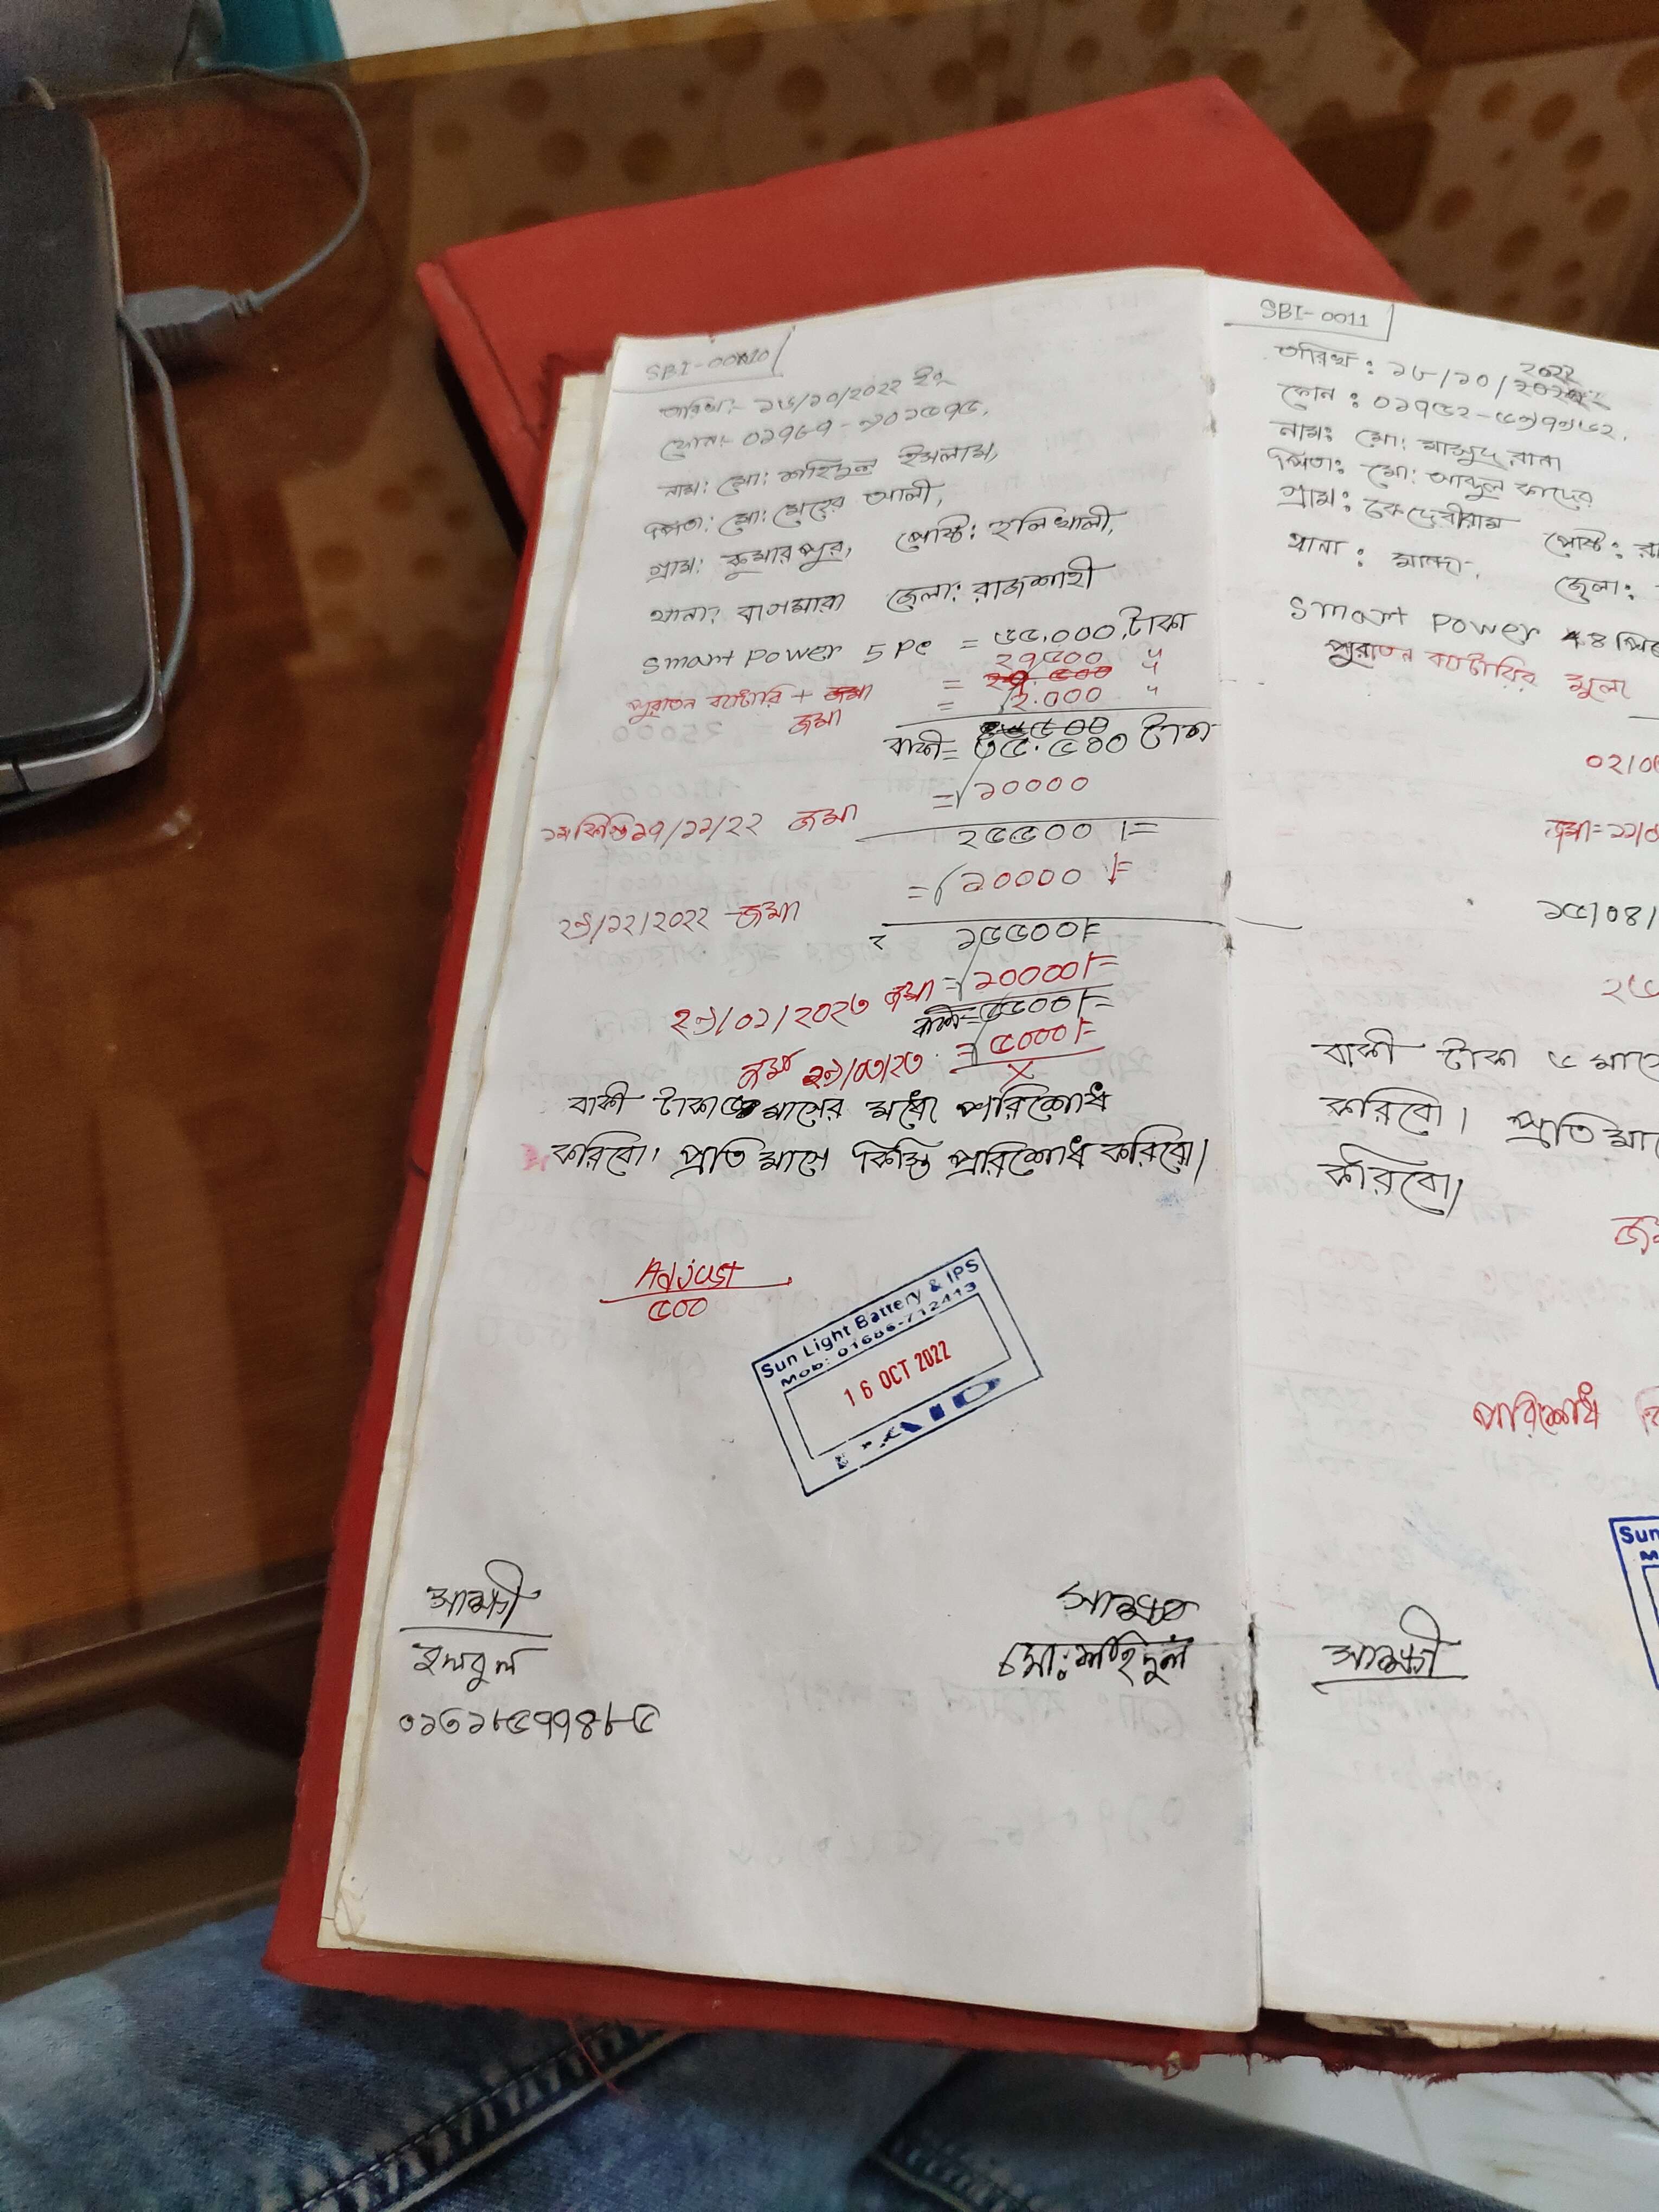 SBI-0010
তারিখ:- ১৬/১০/২০২২ ইং
ফোন:-
নাম: মো: শহিদুল ইসলাম,
পিতা: মো: মেহের আলী,
গ্রাম: কুমারপুর, পোষ্ট: হলিখালী,
থানা: বাগমারা জেলা: রাজশাহী
Smart Power 5 Pc = ৬৫.০০০ টাকা
২৭৫০০ "
পুরাতন ব্যাটারি + জমা =
জমা = ২.০০০ "
বাকী = ৩৫.৫০০ টাকা
= ১০০০০
১ম কিস্তি ১৭/১১/২২ জমা
২৫৫০০/=
= ১০০০০/=
২৯/১২/২০২২ জমা
১৫৫০০/=
২৯/০১/২০২৩ জমা = ১০০০০/=
বাকী = ৫৫০০/=
জমা ২৯/০৩/২৩ = ৫০০০/=
X
বাকী টাকা মাসের মধ্যে পরিশোধ
করিবো। প্রতি মাসে কিস্তি পরিশোধ করিবো।
Adjust
৫০০
Sun Light Battery & IPS
Mob: 01686-712443
16 OCT 2022
PAID
সাক্ষী
০১৩১৮৫৭৭৪৮৫
স্বাক্ষর
মো: শহিদুল
SBI-0011
তারিখ: ১৮/১০/২০২২
ফোন:
নাম: মো: মাসুদ রানা
পিতা: মো: আব্দুল কাদের
গ্রাম: পোষ্ট: রা
থানা: মান্দা, জেলা:
Smart Power 4
পুরাতন ব্যাটারির মূল্য
জমা = ১১/০
১৫/০৪/
বাকী টাকা ৬ মাসে
করিবো। প্রতি মাসে
করিবো।
পরিশোধ
Sun
M
সাক্ষী